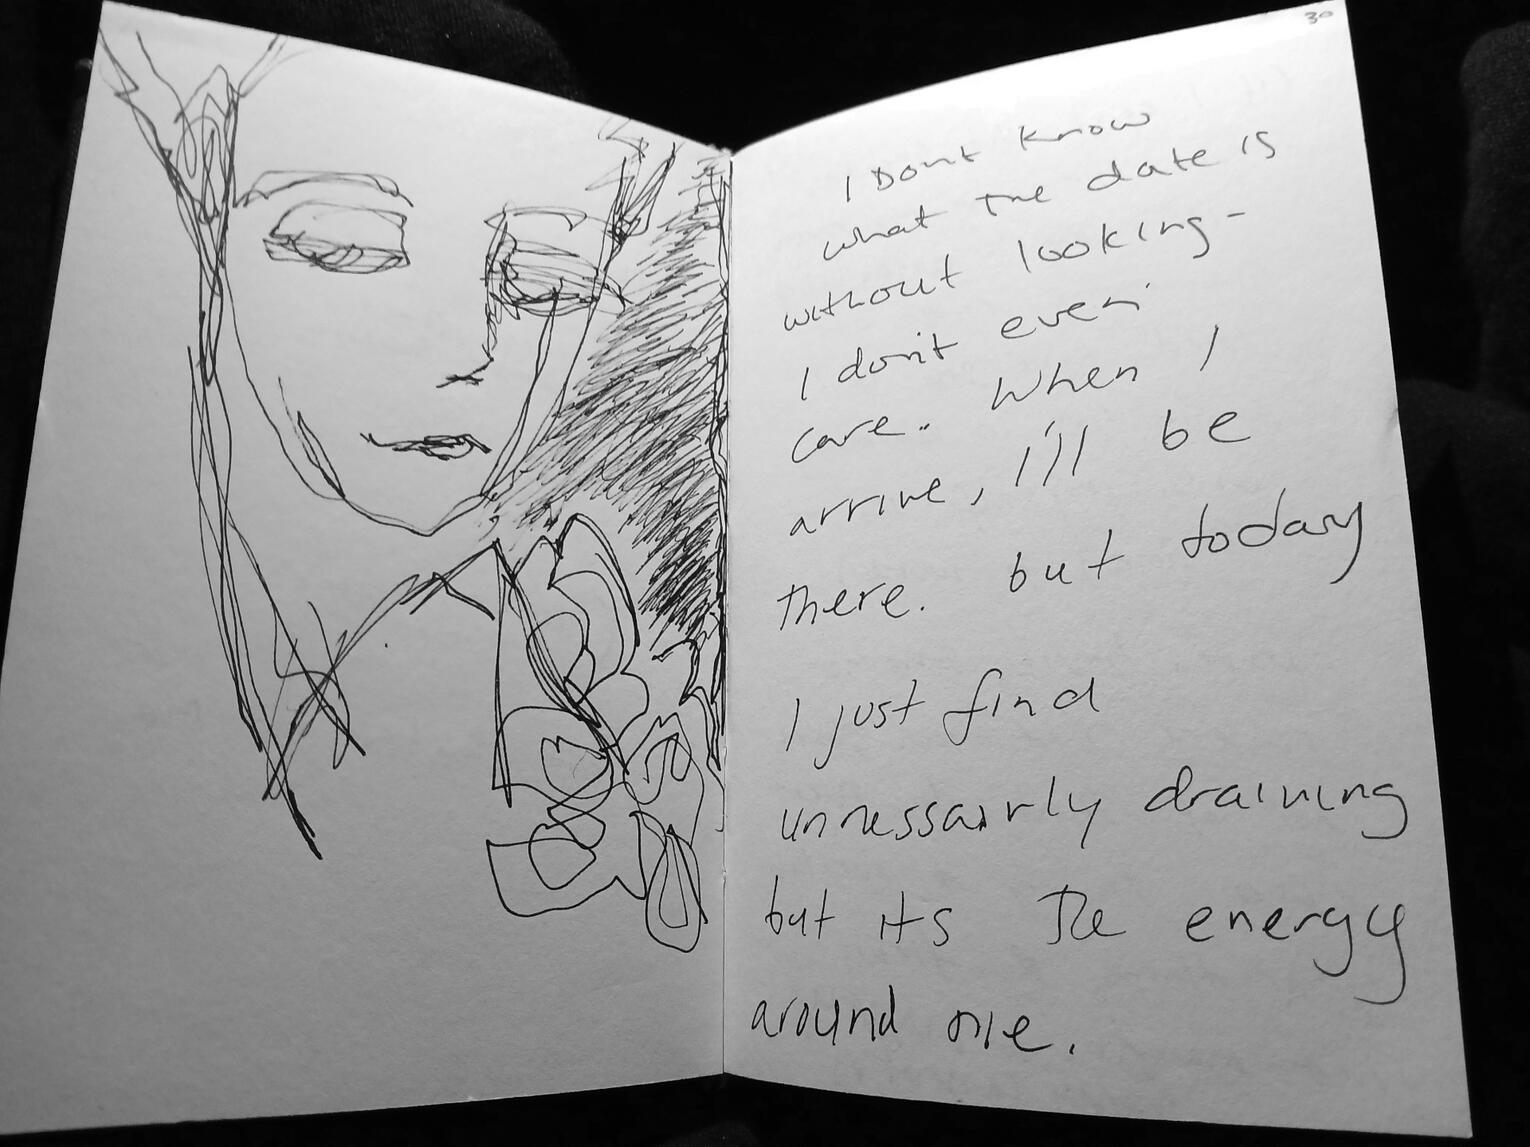 30
I Dont know
what the date is
without looking-
I don't even
care. When I
arrive, I'll be
there. but today
I just find
unnessairly draining
but its The energy
around me.